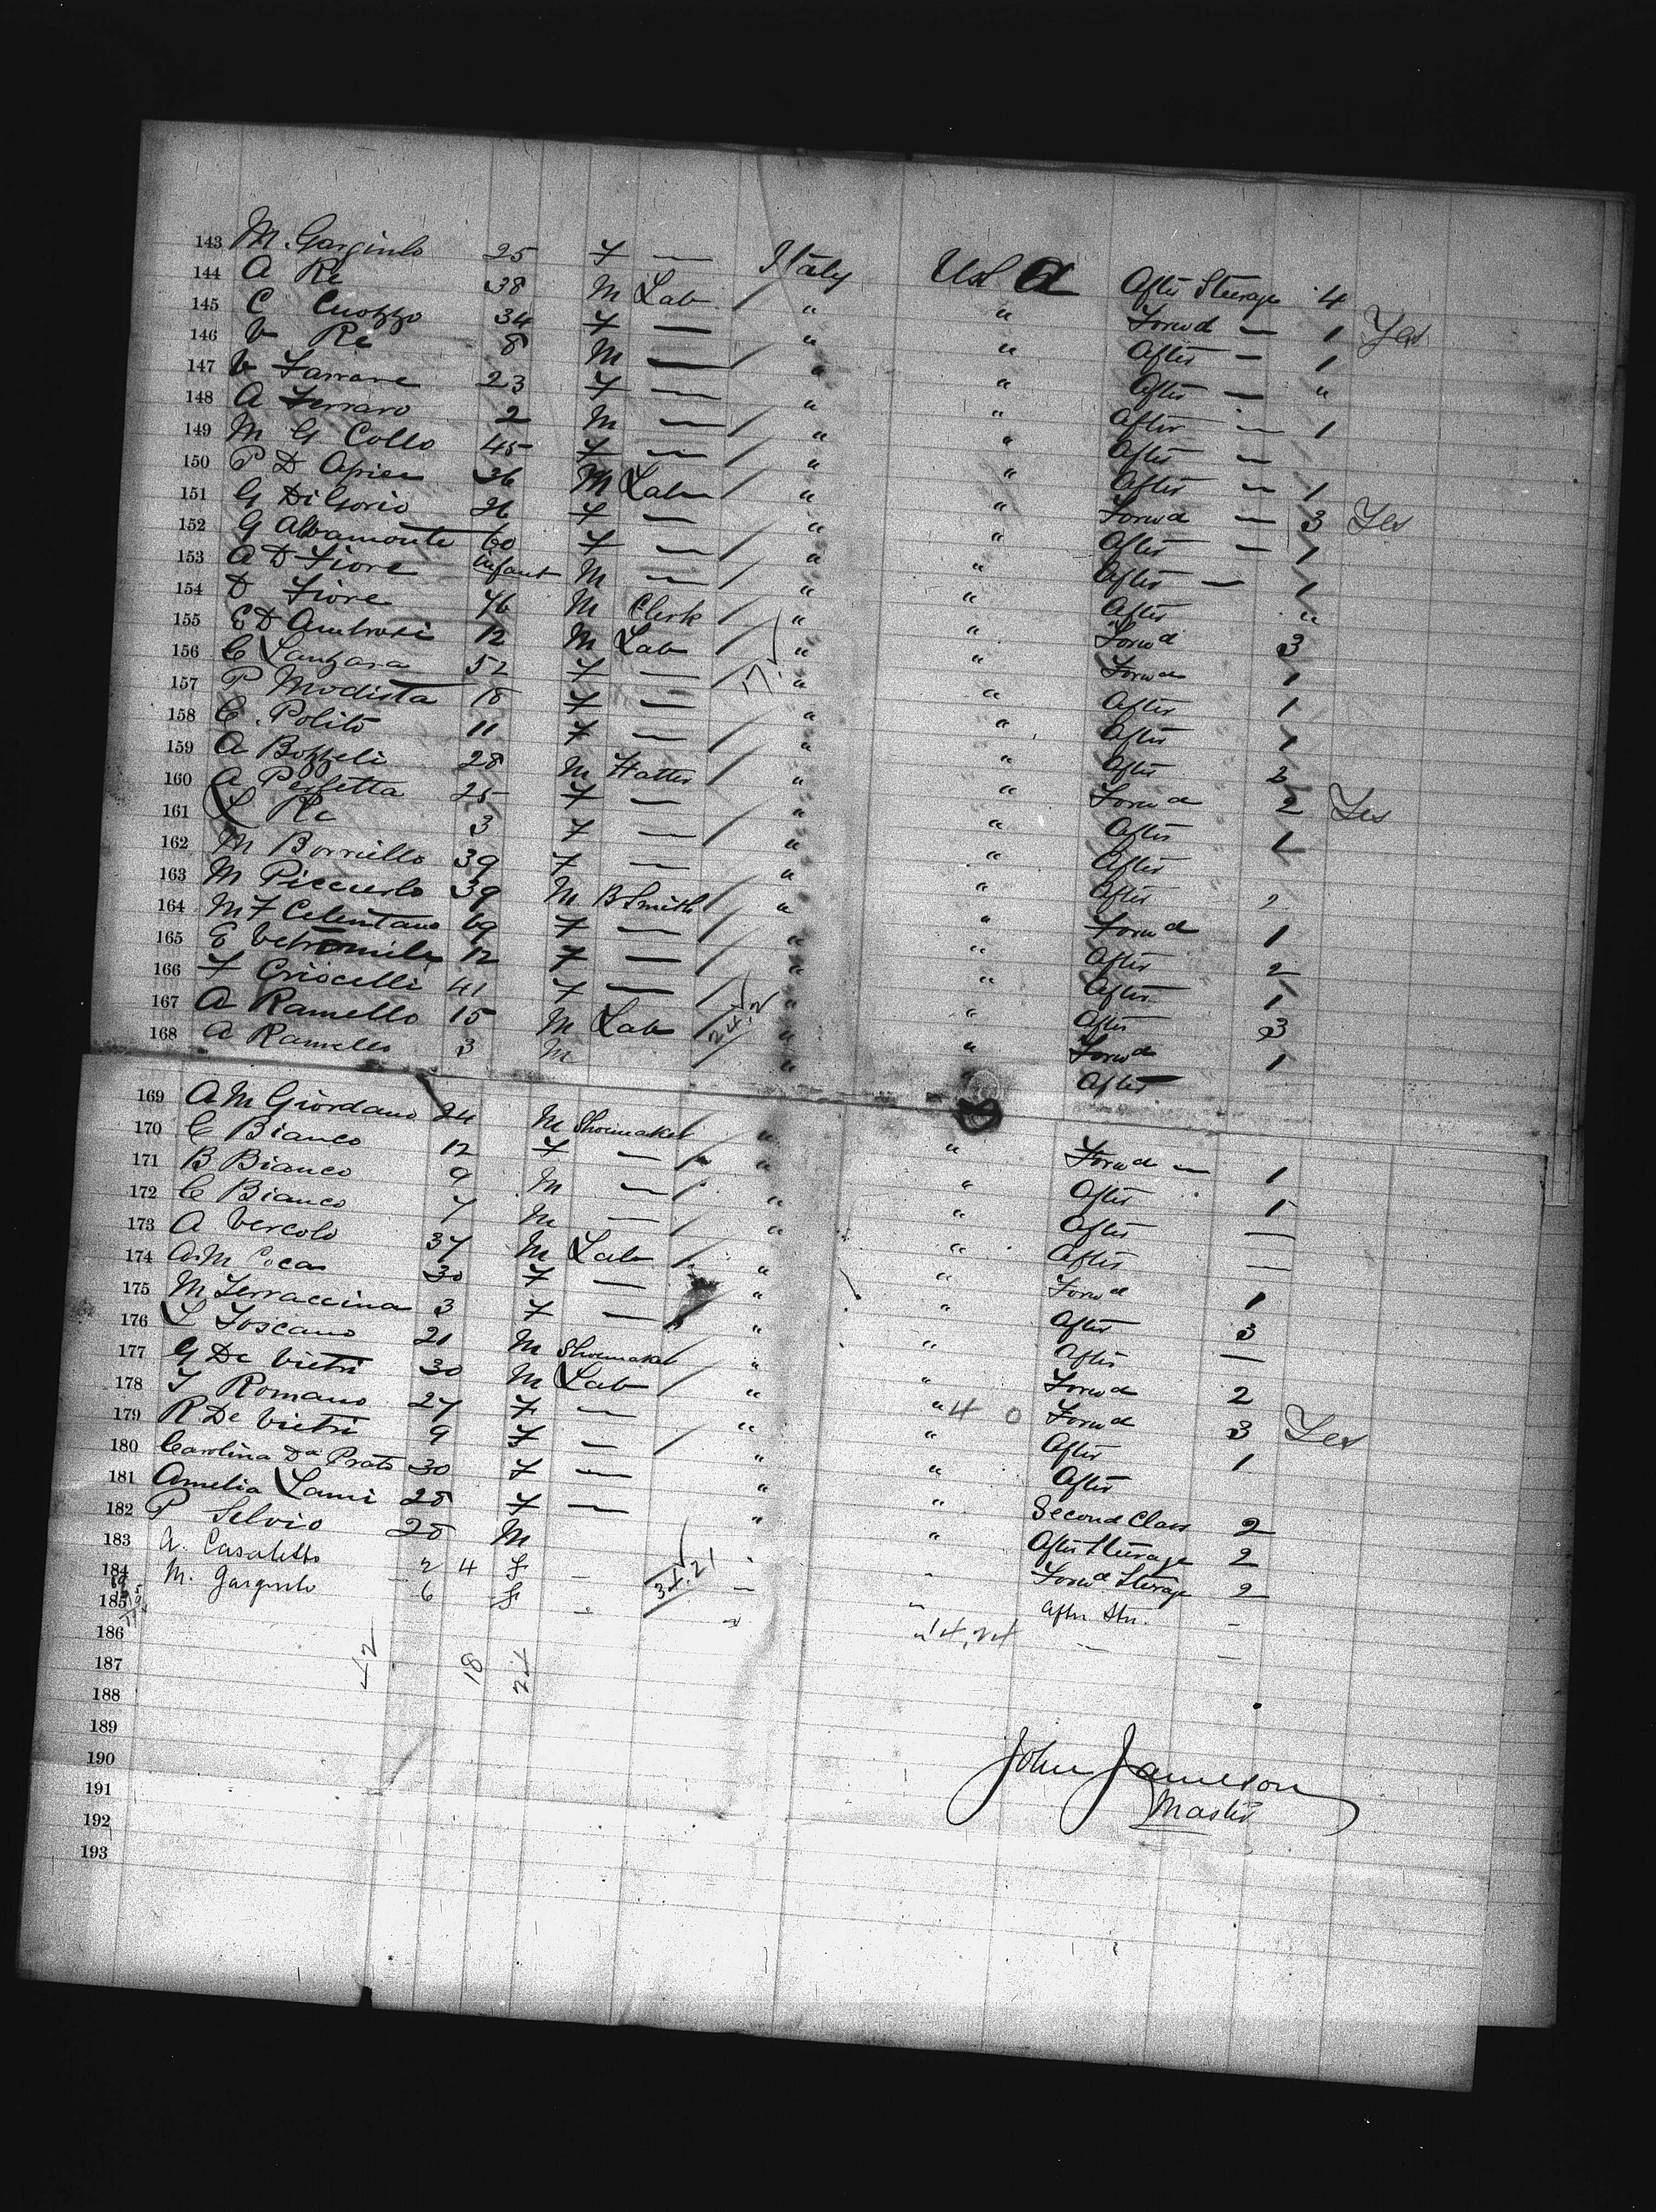 143 M. Gargiulo 25 F — Italy USA After Steerage 4
144 A Re 38 M Lab / " " Forwd — 1 Yes
145 C Cuozzo 34 F — " " After — 1
146 V Re 8 M — / " " After — "
147 V Farrare 23 F — " " After — 1
148 A Ferraro 2 M — / " " After —
149 M G Collo 45 F — / " " After — 1
150 P D 36 M Labr / " " Forwd — 3 Yes
151 G DiGorio 26 F — / " " After — 1
152 G Albamonte 60 F — / " " After — 1
153 A D Fiore infant M — / " " After "
154 D Fiore 46 M Clerk / " " Forwd 3
155 E D Ambrosi 12 M Lab / " " Forwd 1
156 C Lanzara 52 F — / " " After 1
157 P Modista 18 F — " " After 1
158 C. Polito 11 F — / " " After 2
159 A Bozzeli 28 M Hatter / " " Forwd 2 Yes
160 A Perfetta 25 F — / " " After 1
161 L Re 3 F — / " " After
162 M Borriello 39 F — " " After 2
163 M Picciurlo 39 M B Smith / " " Forwd 1
164 M F Celentano 69 F — / " " After 2
165 E Vetromile 12 F — / " " After 1
166 F Criscelli 41 F — / " " After 3
167 A Ramello 15 M Lab / " " Forwd 1
168 A Ramello 3 M " " After
169 A M Giordano 24 M Shoemaker / " " Forwd — 1
170 C Bianco 12 F — / " " After 1
171 B Bianco 9 M — / " " After —
172 C Bianco 7 M — / " " After —
173 A Vercolo 37 M Lab / " " Forwd 1
174 A M 30 F — " " After 3
175 M Terraccina 3 F — / " " After —
176 L Toscano 21 M Shoemaker / " " Forwd 2
177 G De Vietri 30 M Lab / " " 4 0 Forwd 3 Yes
178 F Romano 27 F — " " After 1
179 R De Vietri 9 F — / " " After
180 Carolina Da Prato 30 F — " " Second Class 2
181 Amelia Lami 28 F — " " After Steerage 2
182 P Selvio 28 M Forwd Steerage 2
183 A. Casaletto 24 F — After Str. —
184 M. Gargiulo 6 F — —
185
186
187
188
189
190
191
192
193
42 18 24
John Jameson
Master